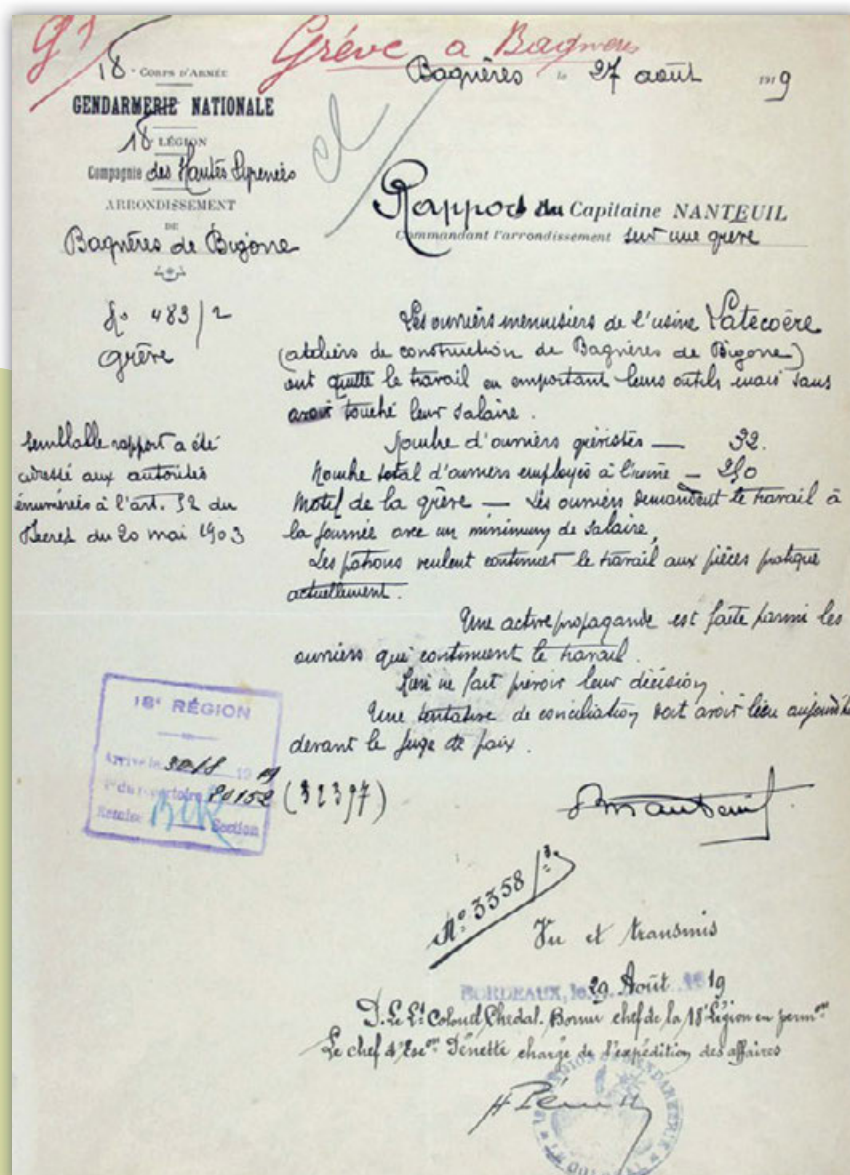 Grève a Bagnères
18e CORPS D'ARMÉE
Bagnères le 27 août 1919
GENDARMERIE NATIONALE
18e LÉGION
Compagnie des Hautes Pyrenées
ARRONDISSEMENT
DE
Bagnères de Bigorre
Rapport du Capitaine NANTEUIL
Commandant l'arrondissement sur une grève
No 483/2
grève
Semblable rapport a été
adressé aux autorités
énumérées à l'art. 52 du
Décret du 20 mai 1903
Les ouvriers menuisiers de l'usine Latécoère
(ateliers de construction de Bagnères de Bigorre)
ont quitté le travail en emportant leurs outils mais sans
avoir touché leur salaire.
Nombre d'ouvriers grévistes — 32.
Nombre total d'ouvriers employés à l'usine — 250
Motif de la grève — Les ouvriers demandent le travail à
la journée avec un minimum de salaire,
Les patrons veulent continuer le travail aux pièces pratiqué
actuellement.
Une active propagande est faite parmi les
ouvriers qui continuent le travail.
Rien ne fait prévoir leur décision
Une tentative de conciliation doit avoir lieu aujourd'hui
devant le juge de paix.
18e RÉGION
Arrivé le 30/8 1919
No du répertoire 20152
Section
(32397)
No 3358/3
Vu et transmis
BORDEAUX, le 29 Août 1919
Le Lt Colonel Chedal. Bornu chef de la 18e Légion en permon
Le chef d'Escon Pénette chargé de l'expédition des affaires